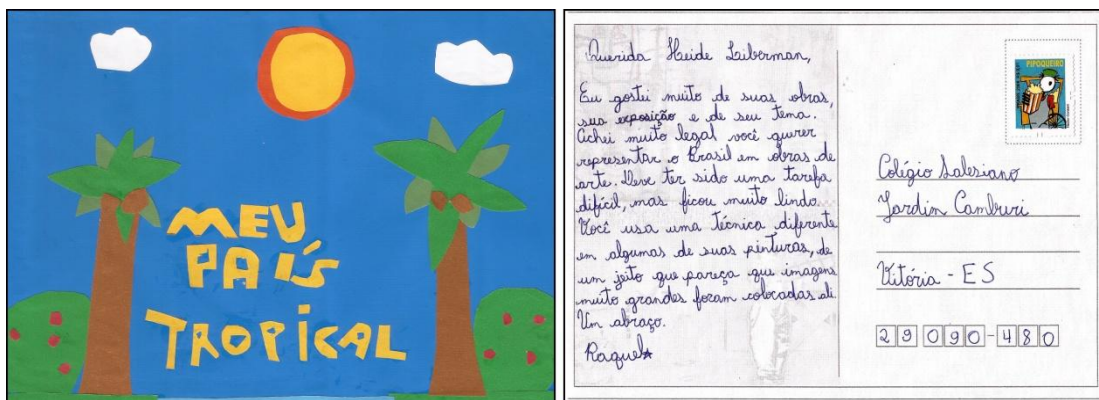 MEU
PAÍS
TROPICAL
Querida Heide Liberman,
Eu gostei muito de suas obras,
sua exposição e de seu tema.
Achei muito legal você querer
representar o Brasil em obras de
arte. Deve ter sido uma tarefa
difícil, mas ficou muito lindo.
Você usa uma técnica diferente
em algumas de suas pinturas, de
um jeito que pareça que imagens
muito grandes foram colocadas ali.
Um abraço.
Raquel
PIPOQUEIRO
Colégio Salesiano
Jardin Camburi
Vitória - ES
29090-480